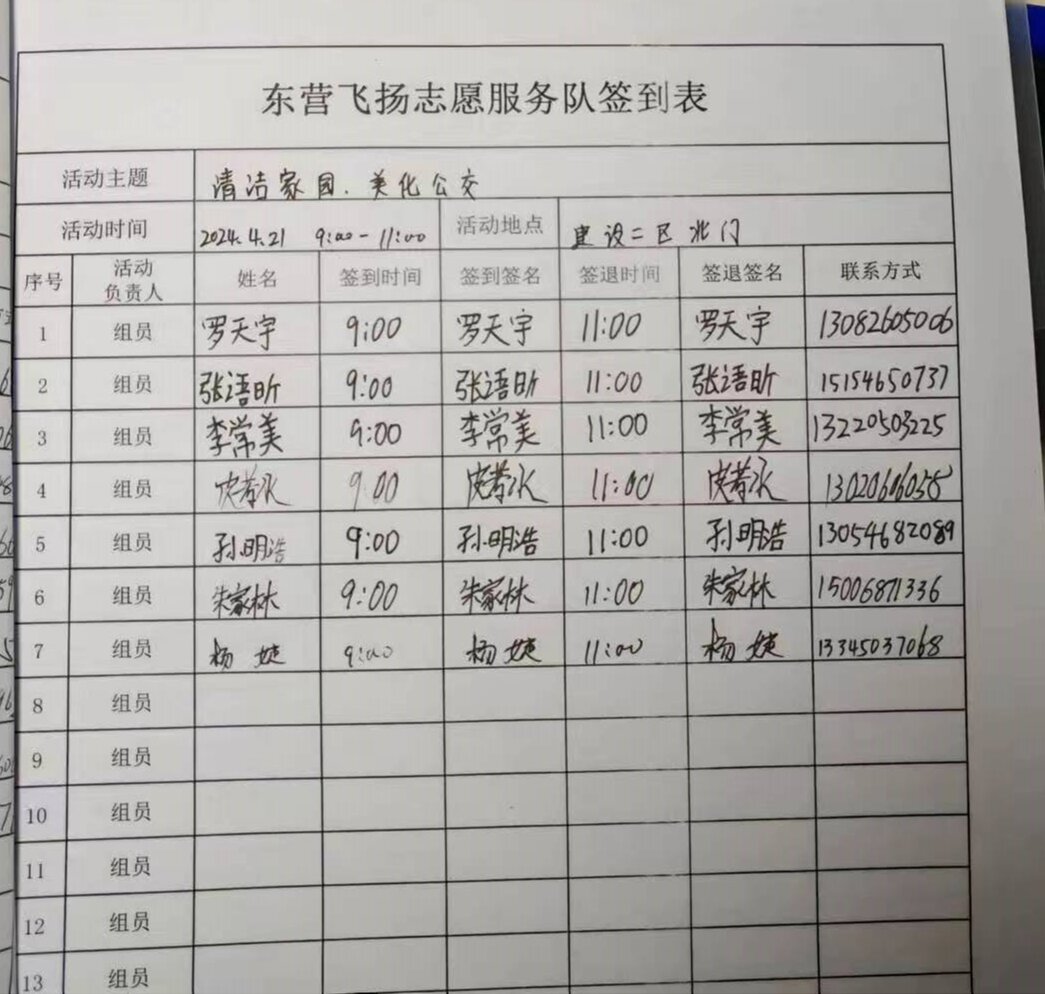 东营飞扬志愿服务队签到表
活动主题 清洁家园.美化公交
活动时间 2024.4.21 9:00-11:00 活动地点 建设二区北门
序号 活动负责人 姓名 签到时间 签到签名 签退时间 签退签名 联系方式
1 组员 罗天宇 9:00 罗天宇 11:00 罗天宇 13082605006
2 组员 张语昕 9:00 张语昕 11:00 张语昕 15154650737
3 组员 李常美 9:00 李常美 11:00 李常美 13220503225
4 组员 9.00 11:00
5 组员 孙明浩 9:00 孙明浩 11:00 孙明浩 13054682089
6 组员 朱家林 9:00 朱家林 11:00 朱家林 15006871336
7 组员 杨婕 9:00 杨婕 11:00 杨婕 13345037068
8 组员
9 组员
10 组员
11 组员
12 组员
13 组员